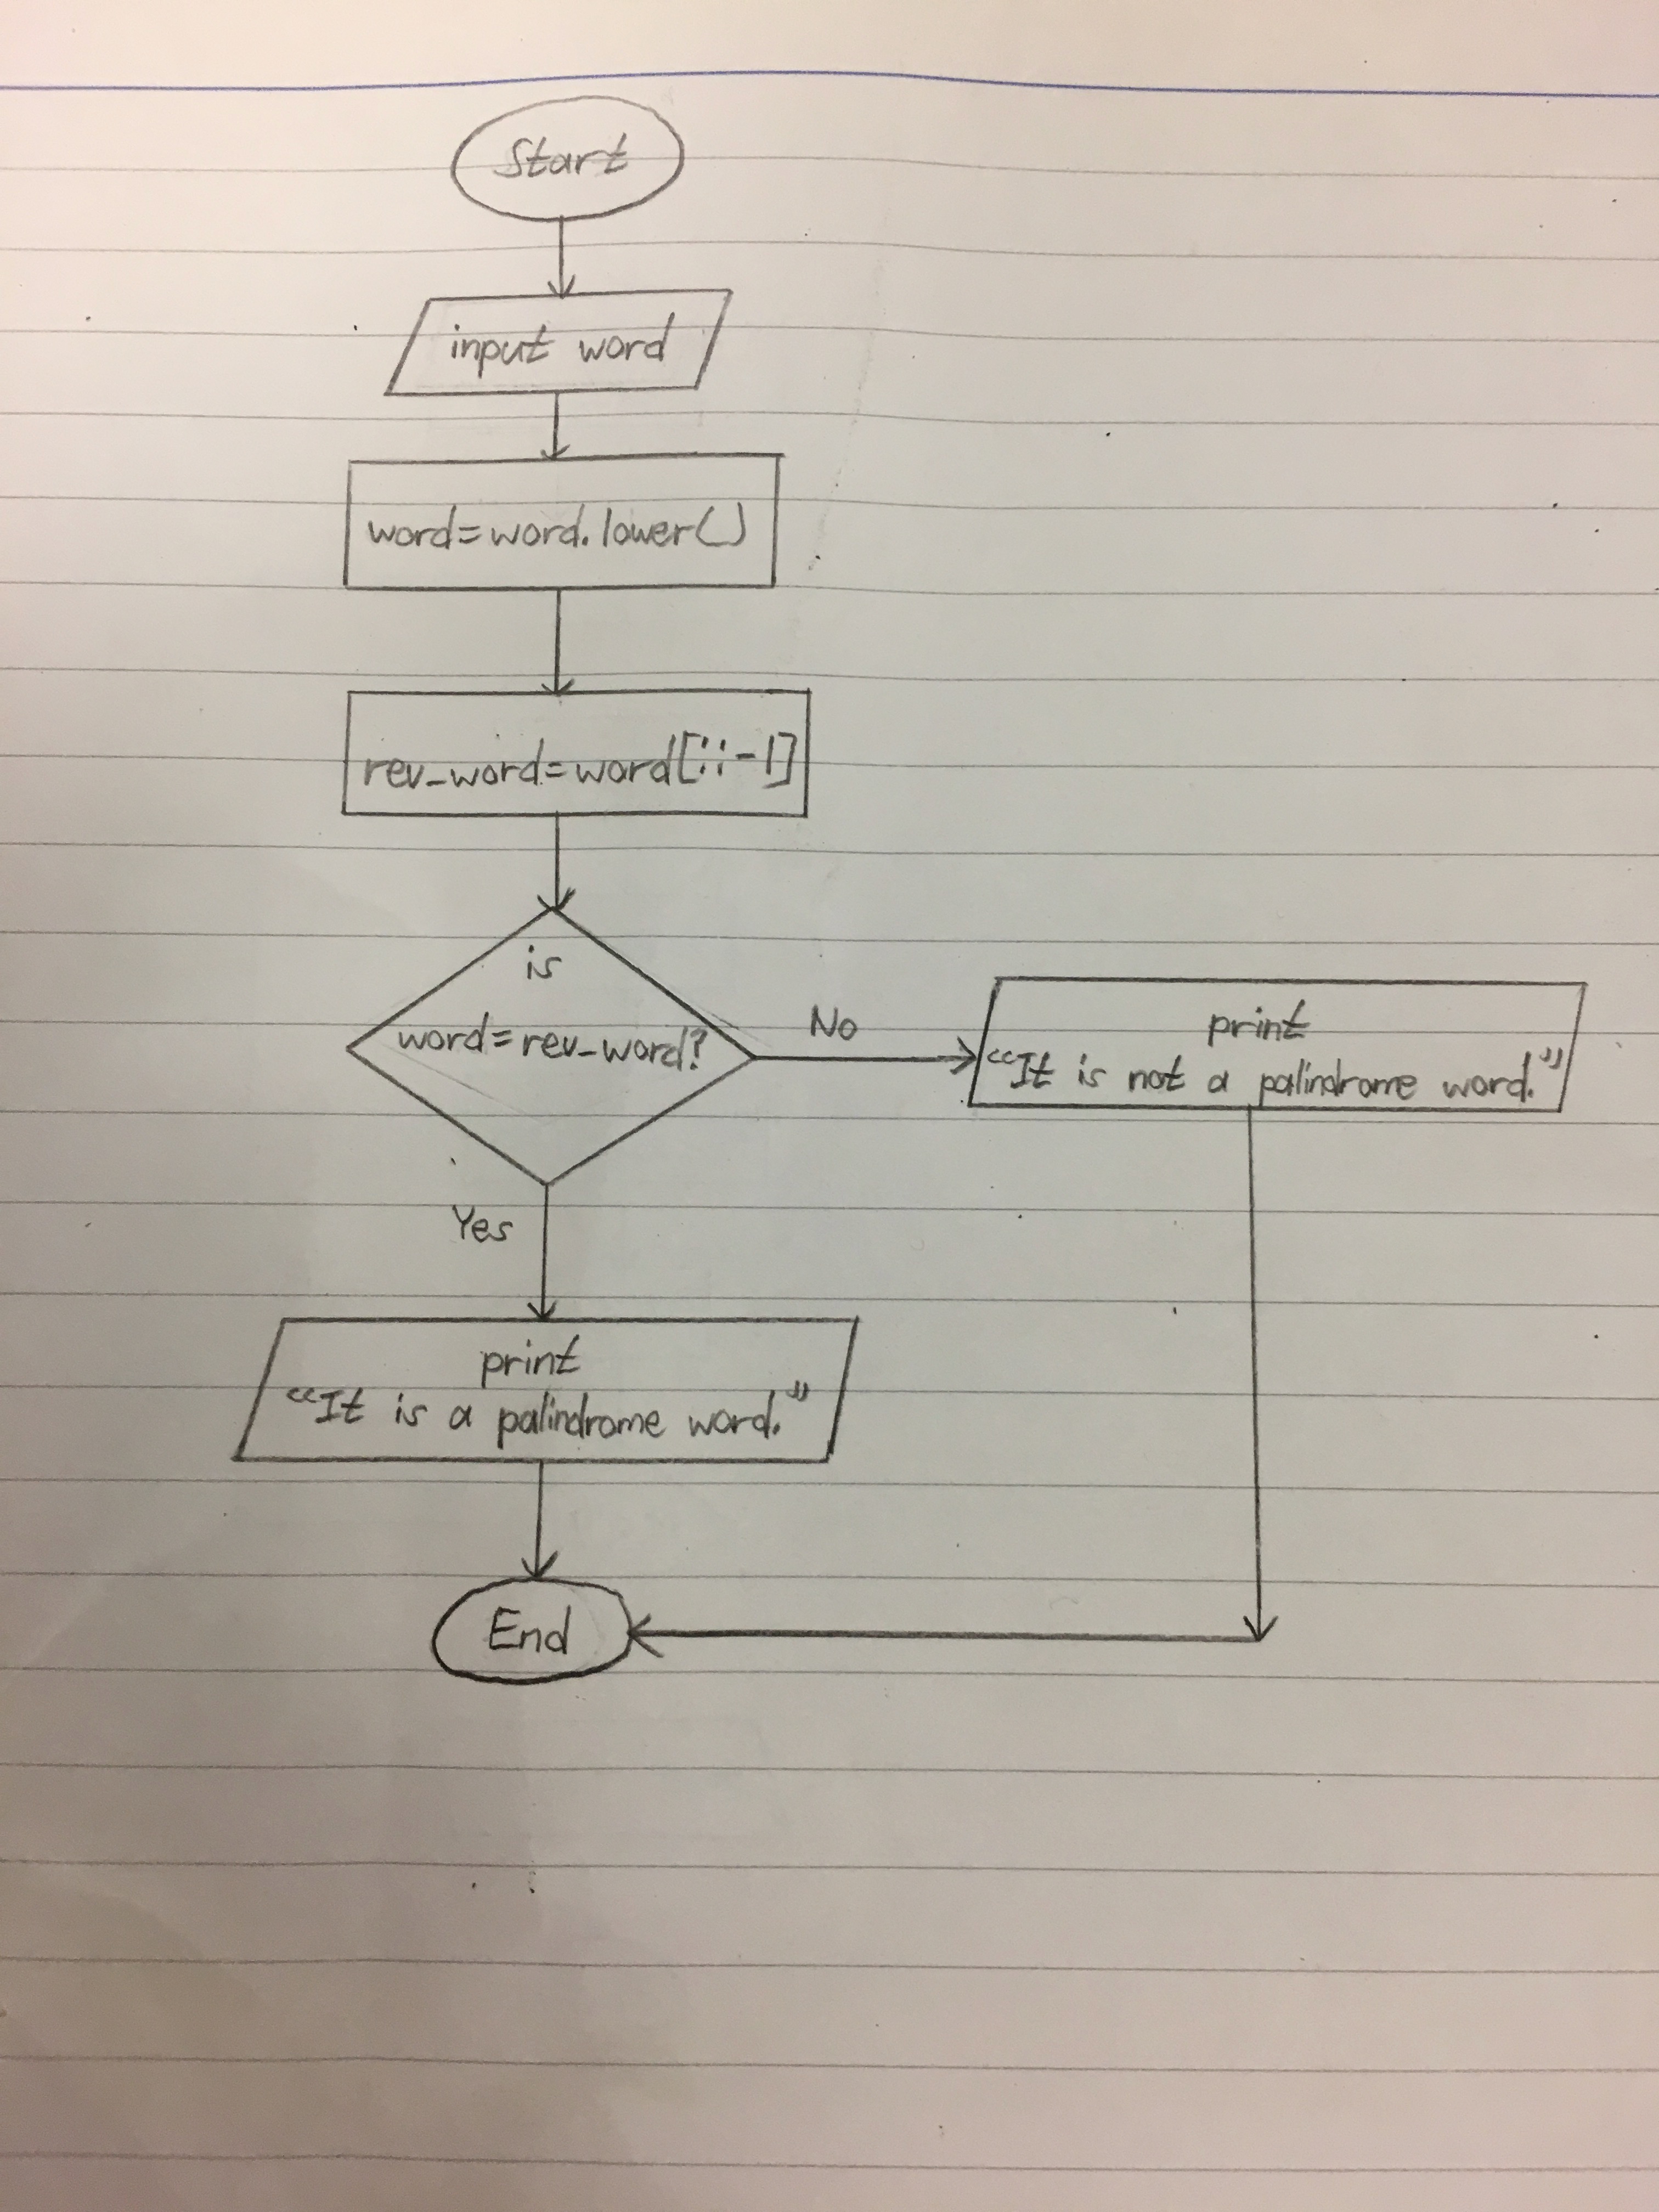 Start
input word
word=word.lower()
rev_word=word[::-1]
is
word=rev_word?
No
print
“It is not a palindrome word.”
Yes
print
“It is a palindrome word.”
End